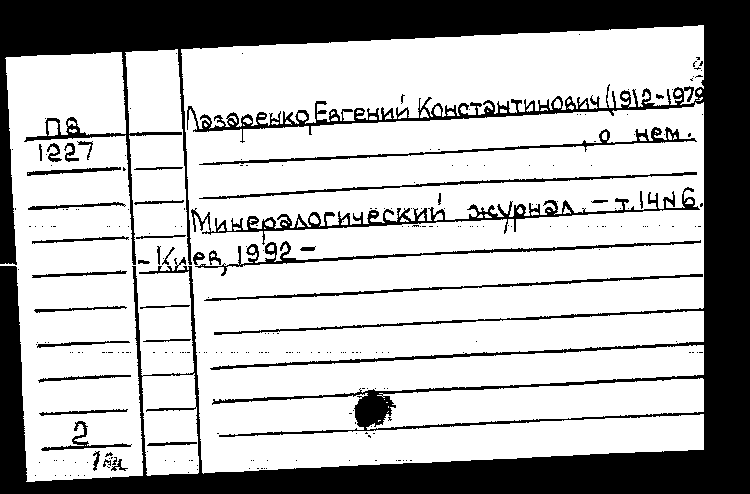 Лазаренко, Евгений Константинович (1912-1979)
П8
1227
, о нем.
Минералогический журнал. - т.14 №6.
- Киев, 1992 -
2